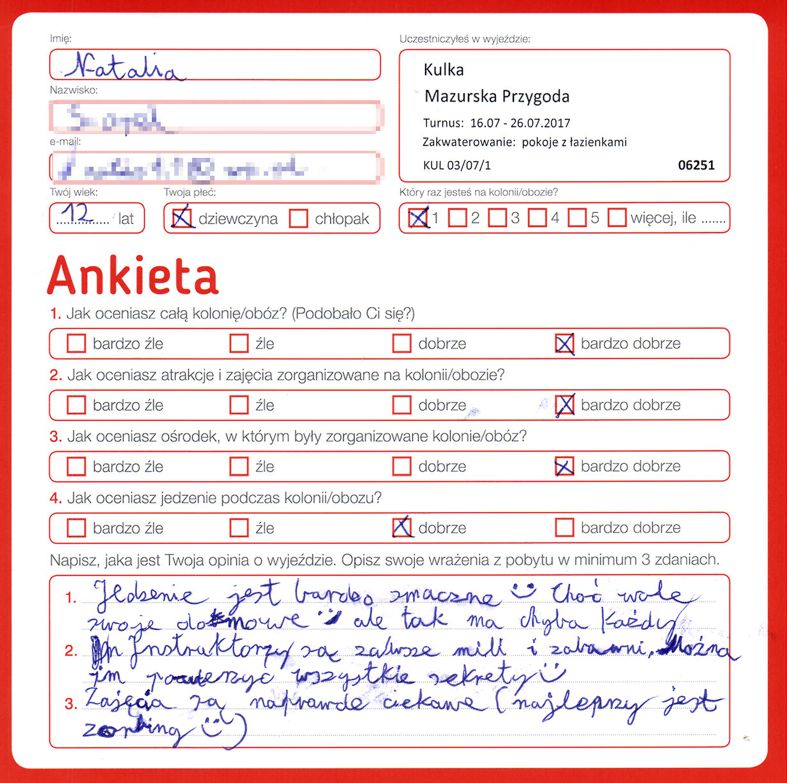 Imię:
Natalia
Uczestniczyłeś w wyjeździe:
Kulka
Mazurska Przygoda
Turnus: 16.07 - 26.07.2017
Zakwaterowanie: pokoje z łazienkami
KUL 03/07/1 06251
Nazwisko:
e-mail:
Twój wiek:
12 lat
Twoja płeć:
dziewczyna chłopak
Który raz jesteś na kolonii/obozie?
1 2 3 4 5 więcej, ile .......
Ankieta
1. Jak oceniasz całą kolonię/obóz? (Podobało Ci się?)
bardzo źle źle dobrze bardzo dobrze
2. Jak oceniasz atrakcje i zajęcia zorganizowane na kolonii/obozie?
bardzo źle źle dobrze bardzo dobrze
3. Jak oceniasz ośrodek, w którym były zorganizowane kolonie/obóz?
bardzo źle źle dobrze bardzo dobrze
4. Jak oceniasz jedzenie podczas kolonii/obozu?
bardzo źle źle dobrze bardzo dobrze
Napisz, jaka jest Twoja opinia o wyjeździe. Opisz swoje wrażenia z pobytu w minimum 3 zdaniach.
1. Jedzenie jest bardzo smaczne Choć wole
swoje domowe ale tak ma chyba Każdy
2. Instruktorzy są zawsze mili i zabawni. Można
im powierzyć wszystkie sekrety
3. Zajęcia są naprawde ciekawe (najlepszy jest
zorbing )